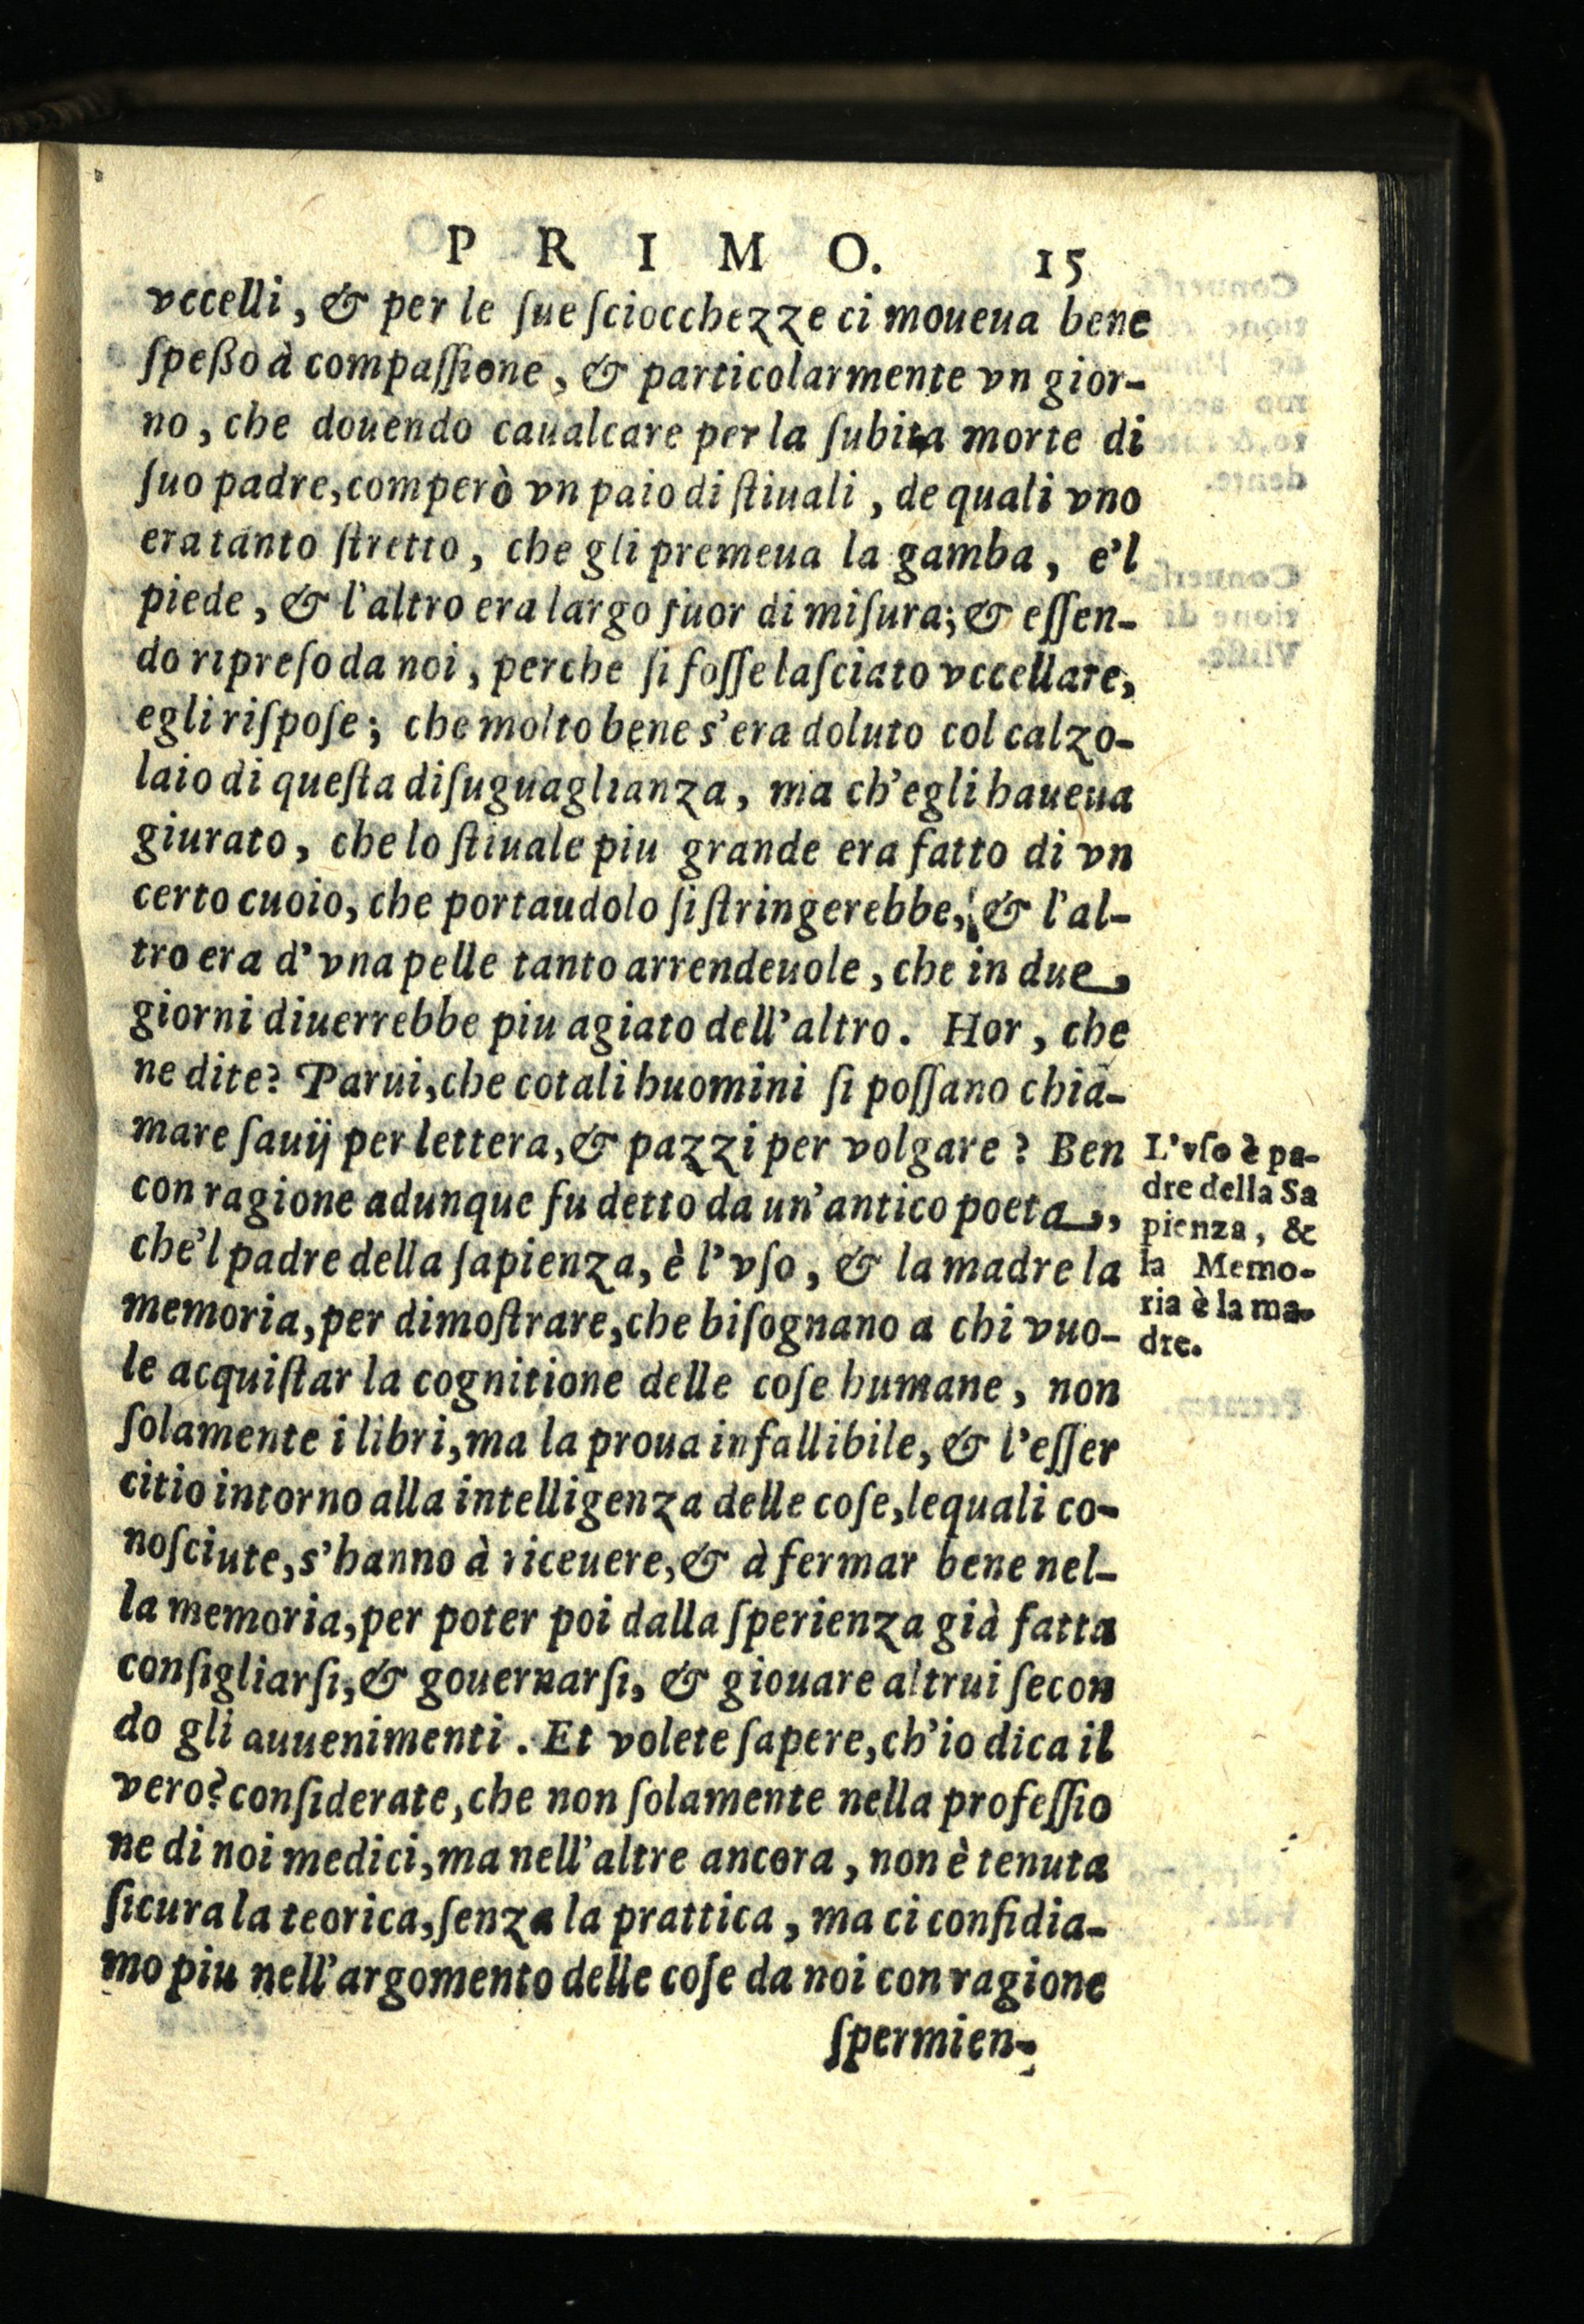 PRIMO. 15
vccelli, & per le ſue ſciocchezze ci moueua bene
ſpeßo à compaſſione, & particolarmente vn gior-
no, che douendo caualcare per la ſubita morte di
ſuo padre, comperò vn paio di ſtiuali, de quali vno
era tanto ſtretto, che gli premeua la gamba, e'l
piede, & l'altro era largo fuor di miſura; & eſſen-
do ripreſo da noi, perche ſi foſſe laſciato vccellare,
egli riſpoſe; che molto bene s'era doluto col calzo-
laio di queſta diſuguaglianza, ma ch'egli haueua
giurato, che lo ſtiuale piu grande era fatto di vn
certo cuoio, che portaudolo ſi ſtringerebbe, & l'al-
tro era d'vna pelle tanto arrendeuole, che in due
giorni diuerrebbe piu agiato dell'altro. Hor, che
ne dite? Parui, che cotali huomini ſi poſſano chia-
mare ſauij per lettera, & pazzi per volgare? Ben
con ragione adunque fu detto da un'antico poeta,
che'l padre della ſapienza, è l'vſo, & la madre la
memoria, per dimoſtrare, che biſognano a chi vuo-
le acquiſtar la cognitione delle coſe humane, non
ſolamente i libri, ma la proua infallibile, & l'eſſer
citio intorno alla intelligenza delle coſe, lequali co-
noſciute, s'hanno à riceuere, & à fermar bene nel-
la memoria, per poter poi dalla ſperienza già fatta
conſigliarſi, & gouernarſi, & giouare altrui ſecon
do gli auuenimenti. Et volete ſapere, ch'io dica il
vero? conſiderate, che non ſolamente nella profeſſio
ne di noi medici, ma nell'altre ancora, non è tenuta
ſicura la teorica, ſenza la prattica, ma ci confidia-
mo piu nell'argomento delle coſe da noi con ragione
ſpermien-
L'vſo è pa-
dre della Sa
pienza, &
la Memo-
ria è la ma-
dre.